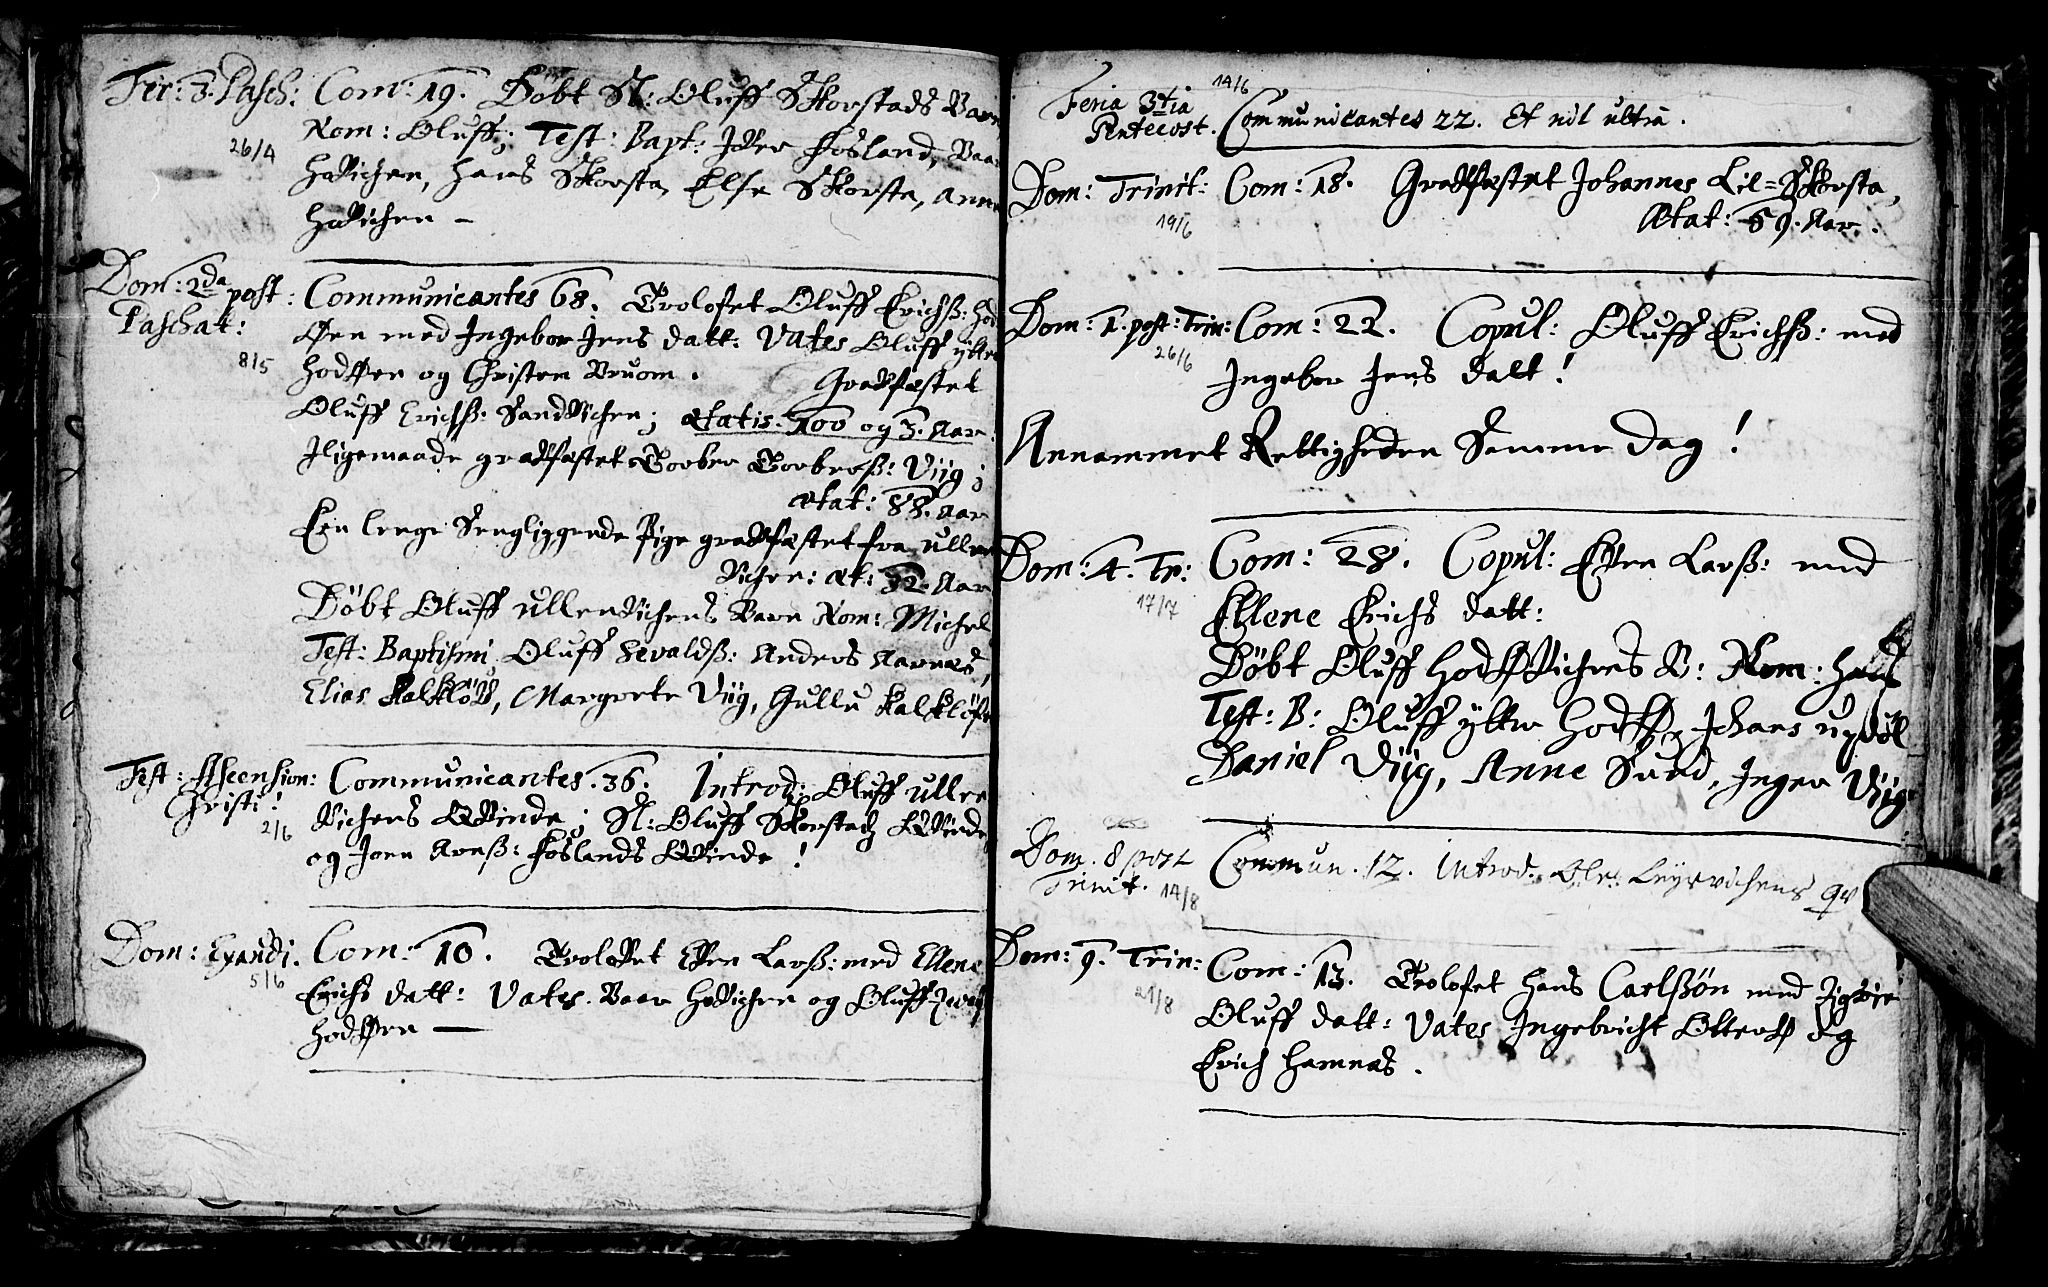 Fer: 3. Pasch: Com: 19. Döbt Sl: Oluff Skorstads Barn
26/4 Nom: Oluff; Test: Bapt: Iver Fosland, Baar
Hovichen, Hans Skorsta, Else Skorsta, Anne
Hovichen –
Dom: 2da post Paschat: Communicantes 68. Trolofvet Oluff Erichß: Hod
8/5 Øen med Ingebor Jens datt: Vates Oluff yttre
Hodøen og Christen Bruom. Gradfæstet
Oluff Erichß: Sandvichen; ætatis. 100 og 3. Aar.
Iligemaade gradfæstet Torber Torberß: Viig;
ætat: 88. Aar
Een lenge Sengliggende Pige gradfæstet fra Ullen
vichen: æt: 32. Aar
Döbt Oluff Ullenvichens Barn Nom: Michel
Test: Baptismi Oluff Sevaldß: Anders Aarnes,
Elias Kalkløv, Margrete Viig, Gullu Kalkløft
Fest: Ascension: Christi! Communicantes. 36. Introd: Oluff Ullen
2/6 vichens Qvinde; Sl: Oluff Skorstads Qvinde,
og Joen Arnß: Foslands Qvinde!
Dom: Exaudi. Com: 10. Trolovet Even Larß: med Ellene
5/6 Erichs datt: Vates. Baar Hovichen og Oluff
Hodøen —
Feria 3tia Pentecost. 14/6 Communicantes 22. Et nil ultra.
Dom: Trinit: Com: 18. Gradfæstet Johannes Lil=Skorsta,
19/6 Ætat: 59. Aar.
Dom: 1. post: Trin: Com: 22. Copul: Oluff Erichß: med
26/6 Ingebor Jens datt!
Annammet Rettigheden Samme Dag!
Dom: 4. Tr: Com: 28. Copul: Even Larß: med
17/7 Ellene Erichs datt:
Döbt Oluff Hodøvichens B: Nom: Hans
Test: B: Oluff yttre Hodø, Johans
Daniel Viig, Anne Sund, Inger Viig
Dom. 8 post Trinit. 14/8 Commun. 12. Introd. Ole Leyrvichens qv
Dom: 9. Trin: Com: 13. Trolofvet Hans Carlßön med
21/8 Oluff datt: Vates Ingebricht Otterø og
Erich Hamnes.